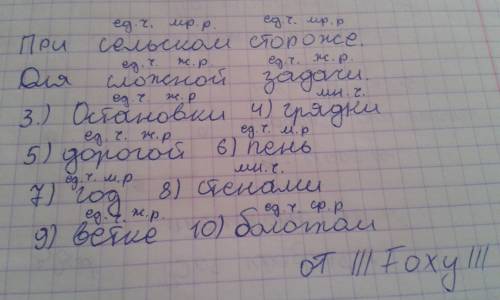 ед.ч. мр.р. ед.ч. мр.р
При сельском стороже.
ед.ч. ж.р. ед.ч. ж.р.
Для сложной задачи.
ед.ч ж.р мн.ч.
3.) Остановки 4) грядки
ед.ч. ж.р ед.ч. м.р
5) дорогой 6) пень
ед.ч. м.р мн.ч.
7) год 8) стенами
ед.ч. ж.р. ед.ч. ср.р
9) ветке 10) болотом
от ||| Foxy |||